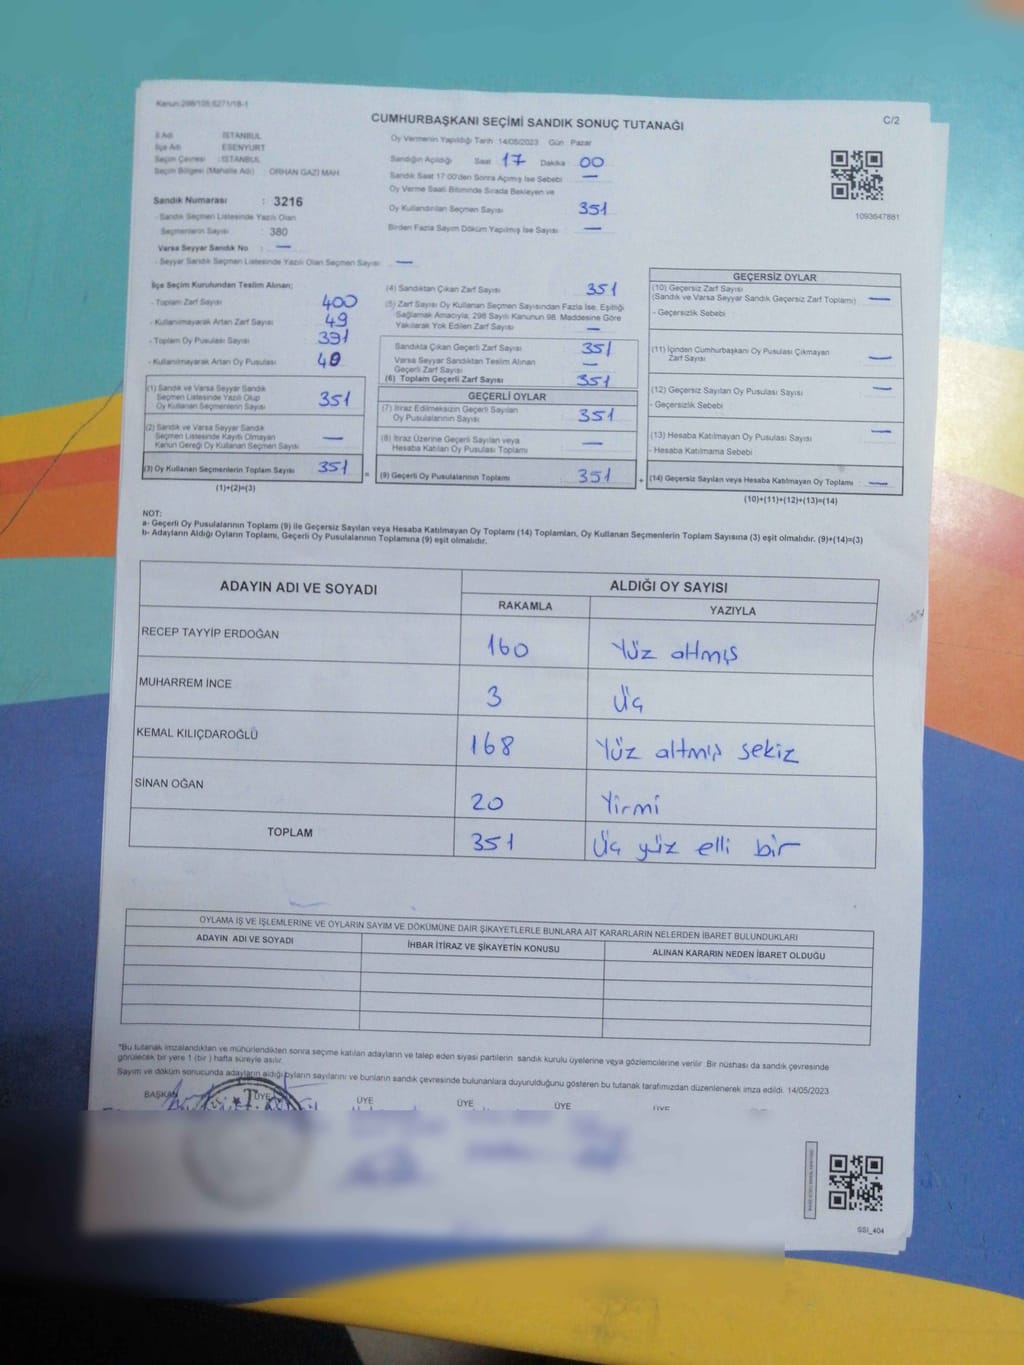 Kanun:298/105;6271/18-1
CUMHURBAŞKANI SEÇİMİ SANDIK SONUÇ TUTANAĞI
C/2
İl Adı : İSTANBUL
İlçe Adı : ESENYURT
Seçim Çevresi : İSTANBUL
Seçim Bölgesi (Mahalle Adı) ORHAN GAZİ MAH.
Sandık Numarası : 3216
- Sandık Seçmen Listesinde Yazılı Olan
Seçmenlerin Sayısı : 380
Varsa Seyyar Sandık No : —
- Seyyar Sandık Seçmen Listesinde Yazılı Olan Seçmen Sayısı: —
Oy Vermenin Yapıldığı Tarih :14/05/2023 Gün : Pazar
Sandığın Açıldığı Saat 17 Dakika 00
Sandık Saat 17:00'den Sonra Açılmış İse Sebebi —
Oy Verme Saati Bitiminde Sırada Bekleyen ve
Oy Kullandırılan Seçmen Sayısı 351
Birden Fazla Sayım Döküm Yapılmış İse Sayısı —
1093647881
İlçe Seçim Kurulundan Teslim Alınan;
- Toplam Zarf Sayısı 400
- Kullanılmayarak Artan Zarf Sayısı 49
- Toplam Oy Pusulası Sayısı 391
- Kullanılmayarak Artan Oy Pusulası
(1) Sandık ve Varsa Seyyar Sandık
Seçmen Listesinde Yazılı Olup
Oy Kullanan Seçmenlerin Sayısı 351
(2) Sandık ve Varsa Seyyar Sandık
Seçmen Listesinde Kayıtlı Olmayan
Kanun Gereği Oy Kullanan Seçmen Sayısı —
(3) Oy Kullanan Seçmenlerin Toplam Sayısı 351 =
(1)+(2)=(3)
(4) Sandıktan Çıkan Zarf Sayısı 351
(5) Zarf Sayısı Oy Kullanan Seçmen Sayısından Fazla İse, Eşitliği
Sağlamak Amacıyla, 298 Sayılı Kanunun 98. Maddesine Göre
Yakılarak Yok Edilen Zarf Sayısı —
Sandıkta Çıkan Geçerli Zarf Sayısı 351
Varsa Seyyar Sandıktan Teslim Alınan
Geçerli Zarf Sayısı —
(6) Toplam Geçerli Zarf Sayısı 351
GEÇERLİ OYLAR
(7) İtiraz Edilmeksizin Geçerli Sayılan
Oy Pusulalarının Sayısı 351
(8) İtiraz Üzerine Geçerli Sayılan veya
Hesaba Katılan Oy Pusulası Toplamı —
(9) Geçerli Oy Pusulalarının Toplamı 351 +
GEÇERSİZ OYLAR
(10) Geçersiz Zarf Sayısı
(Sandık ve Varsa Seyyar Sandık Geçersiz Zarf Toplamı) —
- Geçersizlik Sebebi
(11) İçinden Cumhurbaşkanı Oy Pusulası Çıkmayan
Zarf Sayısı —
(12) Geçersiz Sayılan Oy Pusulası Sayısı —
- Geçersizlik Sebebi
(13) Hesaba Katılmayan Oy Pusulası Sayısı —
- Hesaba Katılmama Sebebi
(14) Geçersiz Sayılan veya Hesaba Katılmayan Oy Toplamı —
(10)+(11)+(12)+(13)=(14)
NOT:
a- Geçerli Oy Pusulalarının Toplamı (9) ile Geçersiz Sayılan veya Hesaba Katılmayan Oy Toplamı (14) Toplamları, Oy Kullanan Seçmenlerin Toplam Sayısına (3) eşit olmalıdır. (9)+(14)=(3)
b- Adayların Aldığı Oyların Toplamı, Geçerli Oy Pusulalarının Toplamına (9) eşit olmalıdır.
ADAYIN ADI VE SOYADI ALDIĞI OY SAYISI
RAKAMLA YAZIYLA
RECEP TAYYİP ERDOĞAN 160 Yüz altmış
MUHARREM İNCE 3 Üç
KEMAL KILIÇDAROĞLU 168 Yüz altmış sekiz
SİNAN OĞAN 20 Yirmi
TOPLAM 351 Üç yüz elli bir
OYLAMA İŞ VE İŞLEMLERİNE VE OYLARIN SAYIM VE DÖKÜMÜNE DAİR ŞİKAYETLERLE BUNLARA AİT KARARLARIN NELERDEN İBARET BULUNDUKLARI
ADAYIN ADI VE SOYADI İHBAR İTİRAZ VE ŞİKAYETİN KONUSU ALINAN KARARIN NEDEN İBARET OLDUĞU
*Bu tutanak imzalandıktan ve mühürlendikten sonra seçime katılan adayların ve talep eden siyasi partilerin sandık kurulu üyelerine veya gözlemcilerine verilir. Bir nüshası da sandık çevresinde
görülecek bir yere 1 (bir ) hafta süreyle asılır.
Sayım ve döküm sonucunda adayların aldığı oyların sayılarını ve bunların sandık çevresinde bulunanlara duyurulduğunu gösteren bu tutanak tarafımızdan düzenlenerek imza edildi. 14/05/2023
BAŞKAN ÜYE ÜYE ÜYE ÜYE ÜYE
SSI_404